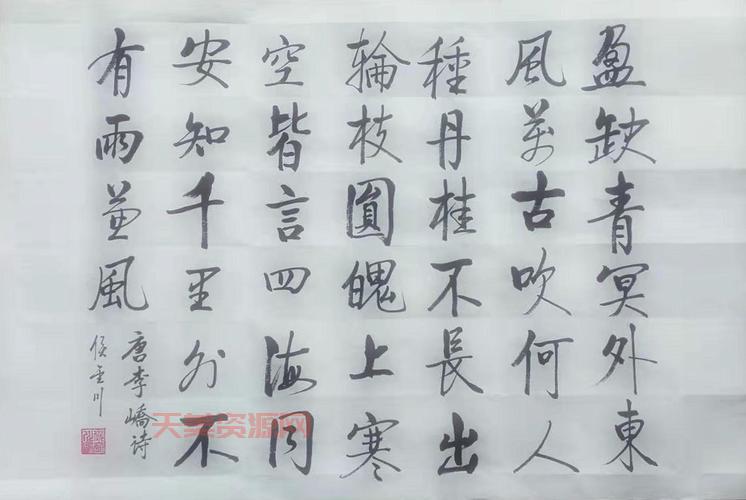 盈缺青冥外東
風萬古吹何人
種丹桂不長出
輪枝圓魄上寒
空皆言四海同
安知千里外不
有雨兼風
唐李嶠诗
侯川
资源网